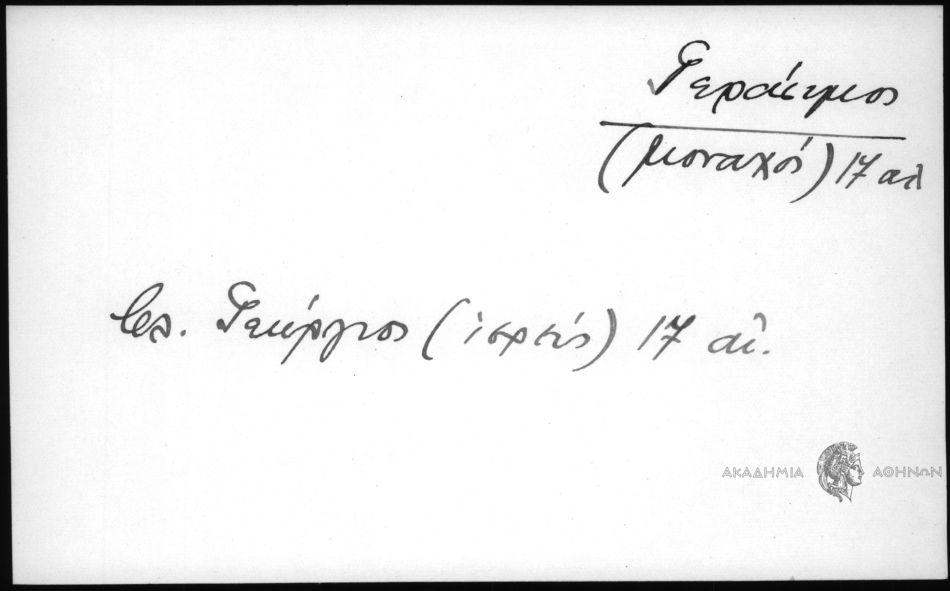 Γεράσιμος
(μοναχός) 17 αἰ
βλ. Γεώργιος (ἱερεύς) 17 αἰ.
ΑΚΑΔΗΜΙΑ ΑΘΗΝΩΝ